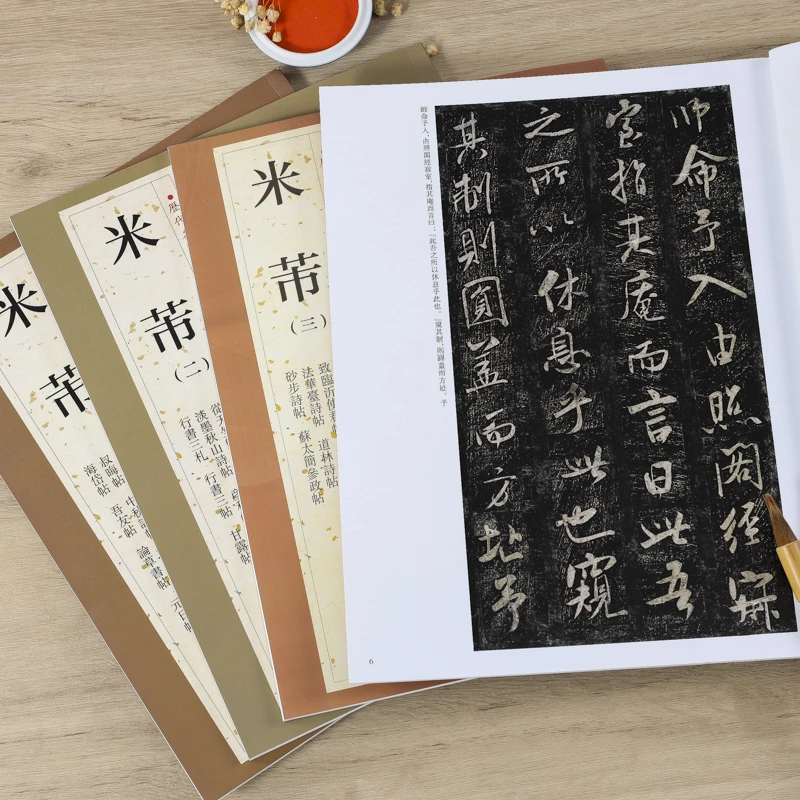 師命予入由照閣經寂
室指其庵而言曰此吾
之所以休息乎此也窺
其制則圓蓋而方址予
師命予入,由照閣經寂室,指其庵而言曰:『此吾之所以休息乎此也。』窺其制,則圓蓋而方址。予
6
米芾
(三)
致臨沂使君帖 道林詩帖
法華臺詩帖 蘇太簡參政帖
砂步詩帖
歷代
米芾
(二)
淡墨秋山詩帖
行書三札 行書 帖 甘露帖
米芾
叔晦帖 中秋詩帖 元日帖
海岱帖 吾友帖 論草書帖